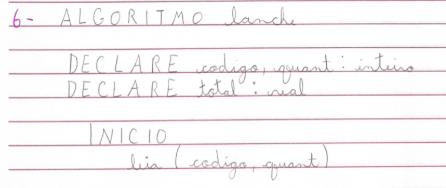 6- ALGORITMO lanche
DECLARE codigo, quant : inteiro
DECLARE total : real
INICIO
leia (codigo, quant)